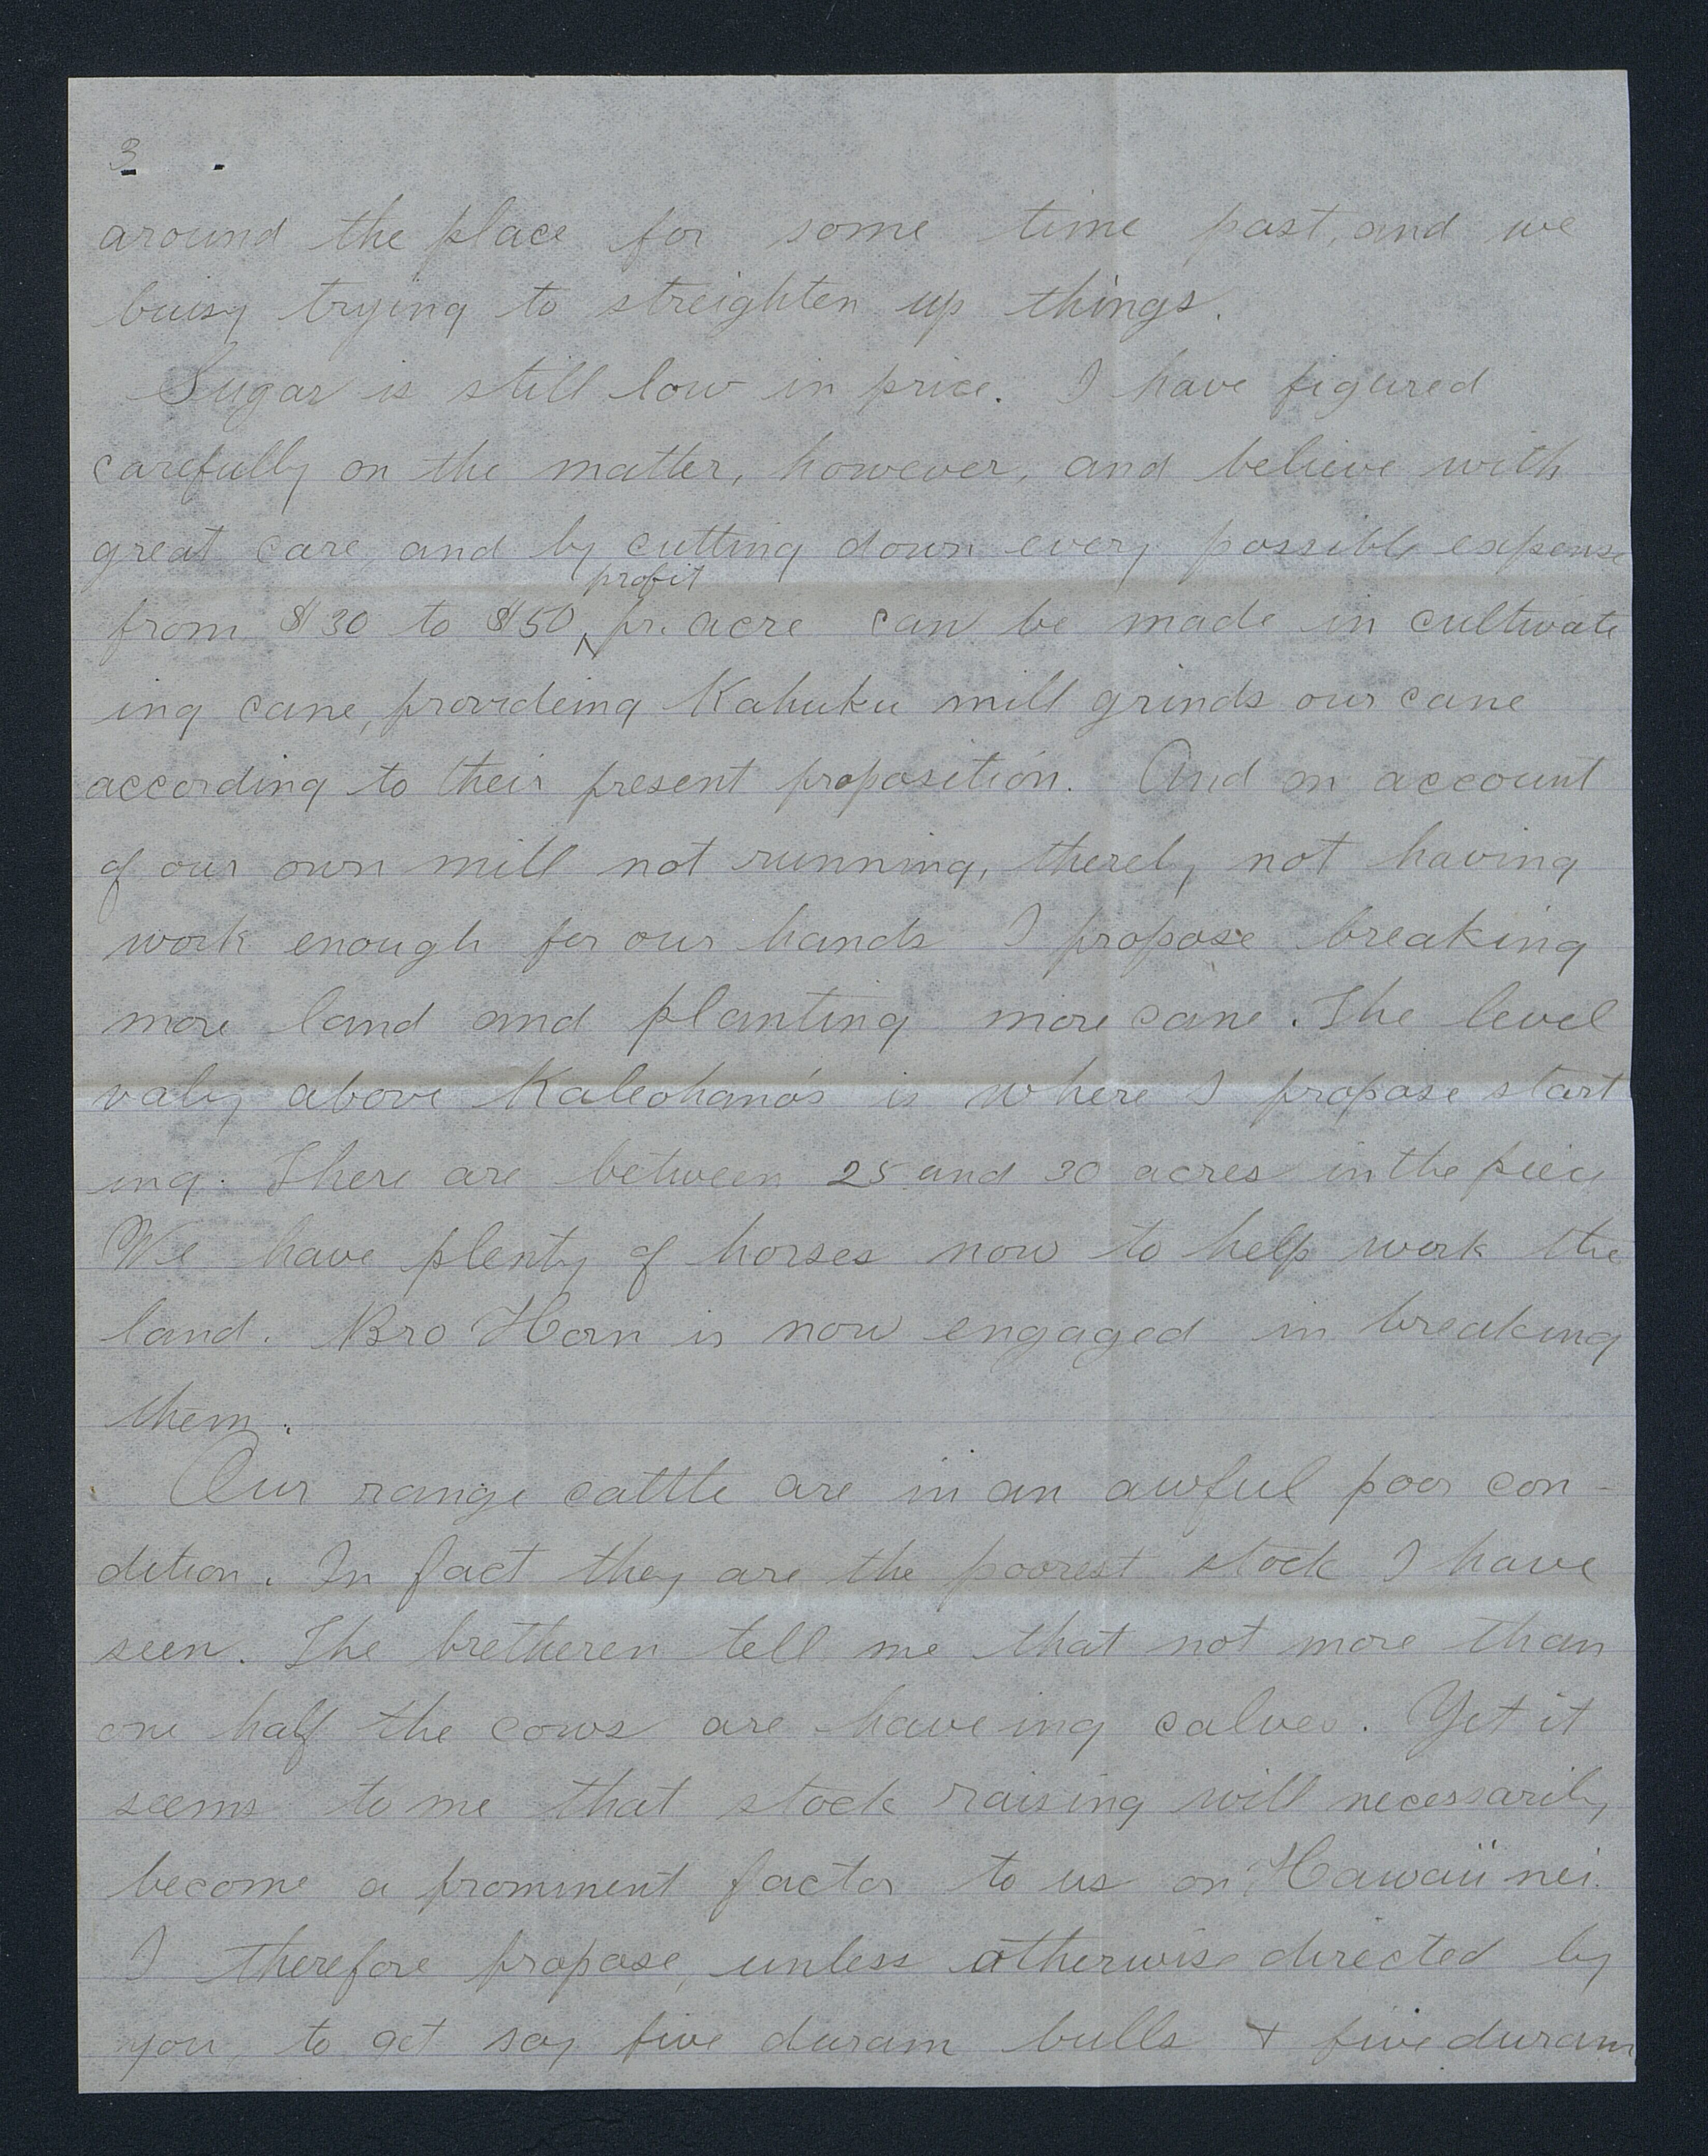 3
around the place for some time past, and we
buisy trying to streighten up things.
Sugar is still low in price. I have figured
carefully on the matter, however, and believe with
great care, and by cutting down every possible expense
profit
from $30 to $50 ^ pr. acre can be made in cultivate
ing cane, provideing Kahuku mill grinds our cane
according to their present proposition. And on account
of our own mill not running, thereby not having
work enough for our hands I propose breaking
more land and planting more cane. The level
valy above Kaleohano's is where I propose start
ing. There are between 25 and 30 acres in the piece
We have plenty of horses now to help work the
land. Bro Horn is now engaged in breaking
them.
Our range cattle are in an awful poor con-
dition. In fact they are the poorest stock I have
seen. The bretheren tell me that not more than
one half the cows are haveing calves. Yet it
seems to me that stock raising will necessarily
become a prominent factor to us on Hawaii nei.
I therefore propose, unless otherwise directed by
you, to get say five duram bulls + five duram